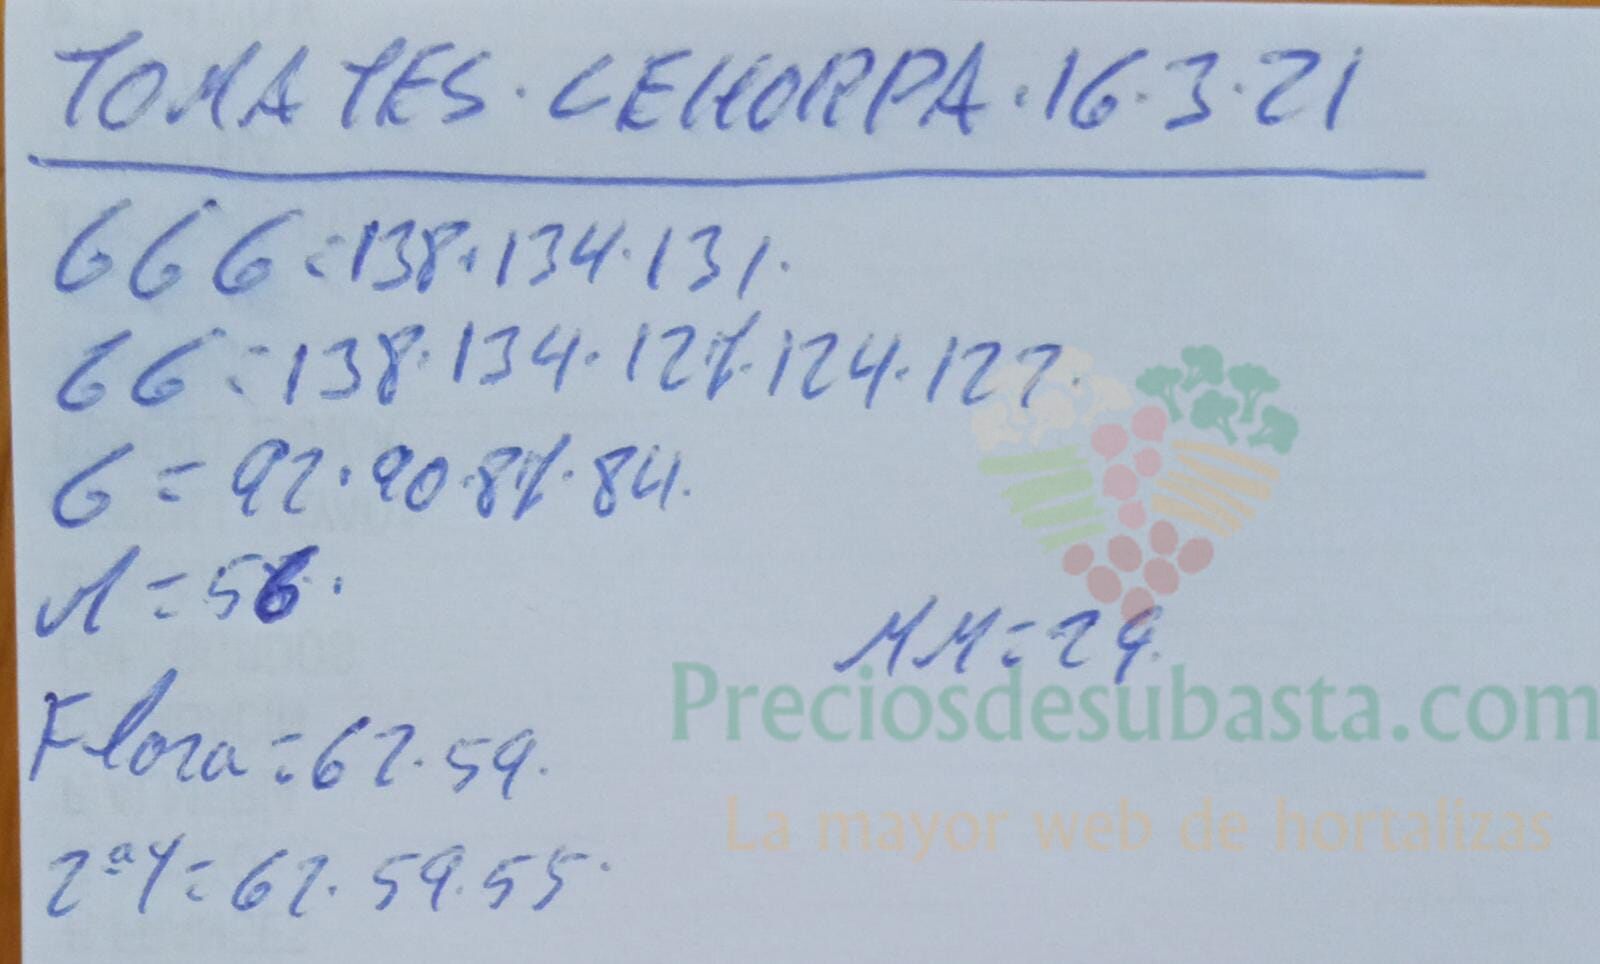 TOMATES · CEHORPA · 16·3·21
GGG = 138·134·131.
GG = 138·134·127·124·122.
G = 92·90·87·84.
M = 56.
MM = 29.
Flora = 62·59.
2ªY = 62·59·55.
Preciosdesubasta.com
La mayor web de hortalizas